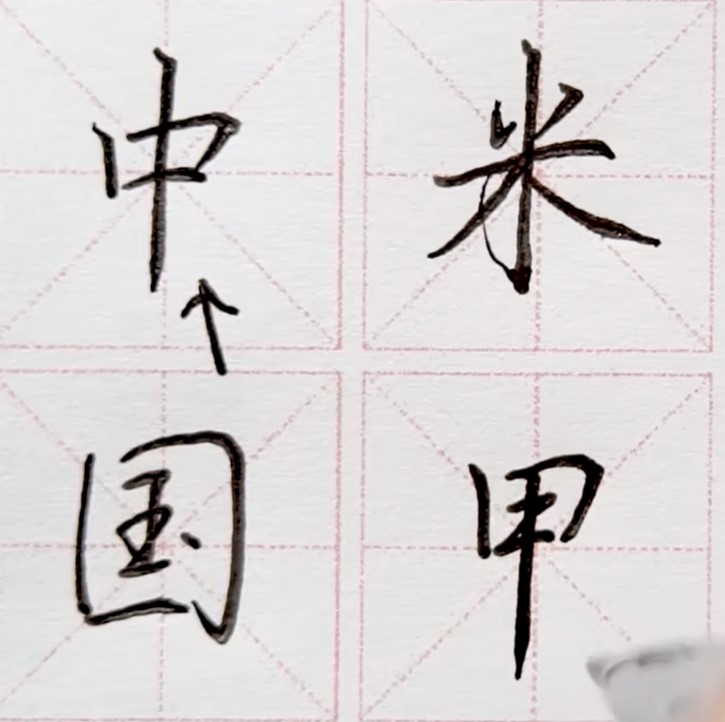 中米
国甲